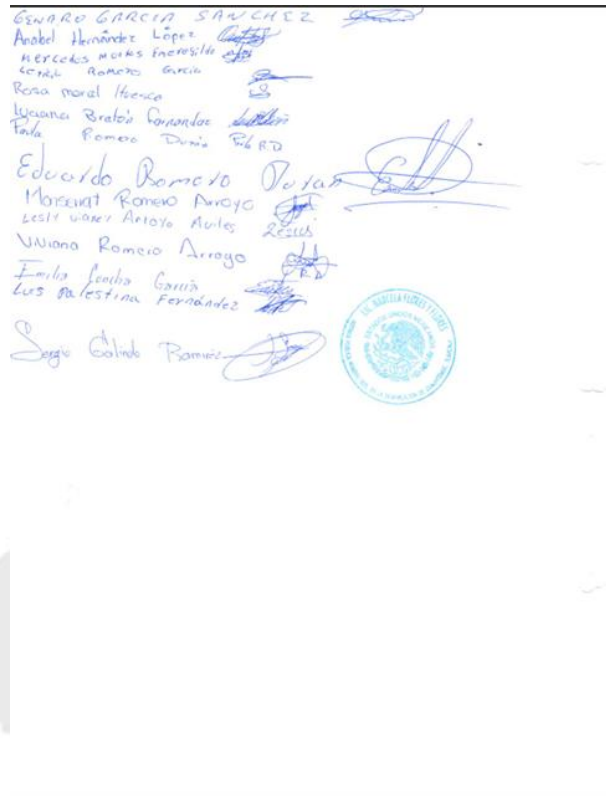 GENARO GARCIA SANCHEZ
Anabel Hernández López
Mercedes
Romero Garcia
Rosa moral Huesca
Luciana Bretón Fernandez
Paola Romero Durán Pao R.D
Eduardo Romero Duran
Monserrat Romero Arroyo
Lesly Arroyo Aviles
Viviana Romero Arroyo
Emilia Concha García
Luis Palestina Fernández
Sergio Galindo Ramírez
LIC. MARCELA FLORES Y FLORES
ESTADOS UNIDOS MEXICANOS